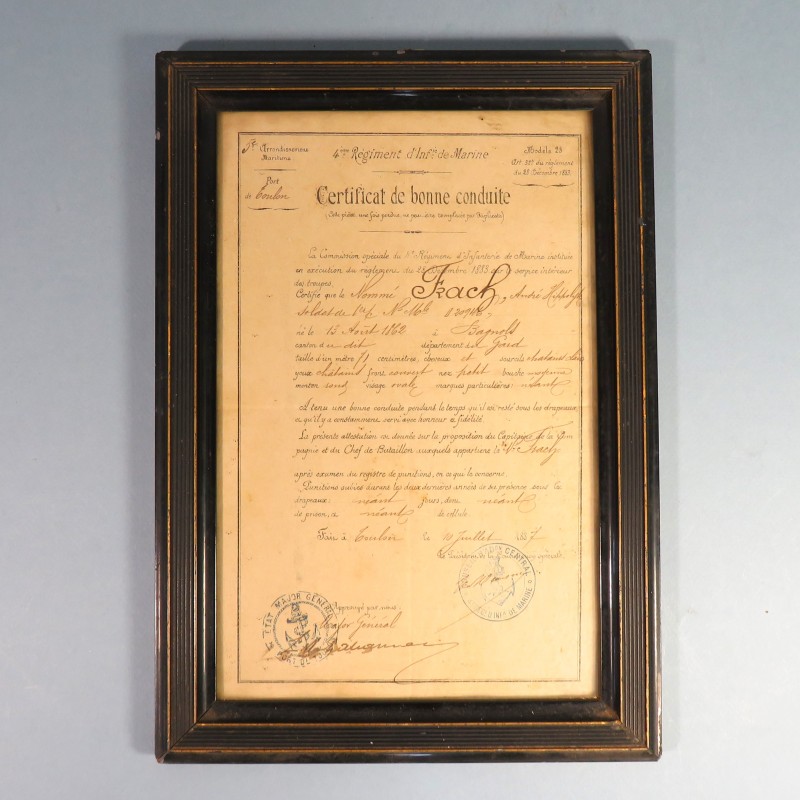 5e Arrondissement
Maritime
Port
de Toulon
4me Régiment d'Infrie de Marine
Modèle 28
Art. du règlement
du 28 Décembre 1883
Certificat de bonne conduite
(Cette pièce une fois perdue, ne peut être remplacée par Duplicata)
La Commission spéciale du Régiment d'Infanterie de Marine instituée
en exécution du règlement du 28 Décembre 1883 sur le service intérieur
des troupes,
Certifie que le Nommé Frach, André Hippolyte
Soldat de No Mle
né le 15 Août 1862 à Bagnols
canton d u dit département du Gard
taille d'un mètre 71 centimètres, cheveux et sourcils châtains
yeux châtains front couvert nez petit bouche moyenne
menton rond visage ovale marques particulières: néant
A tenu une bonne conduite pendant le temps qu'il est resté sous les drapeaux,
et qu'il y a constamment servi avec honneur & fidélité.
La présente attestation est donnée sur la proposition du Capitaine de la Com
pagnie et du Chef de Bataillon auxquels appartient le Frach
après examen du registre de punitions, en ce qui le concerne.
Punitions subies durant les deux dernières années de sa présence sous les
drapeaux: néant jours, dont néant
de prison, et néant de cellule.
Fait à Toulon le 10 Juillet 1887
Le Président de la Commission spéciale,
Approuvé par nous:
Major Général
ETAT MAJOR GENERAL
CENTRAL
INFANTERIE DE MARINE